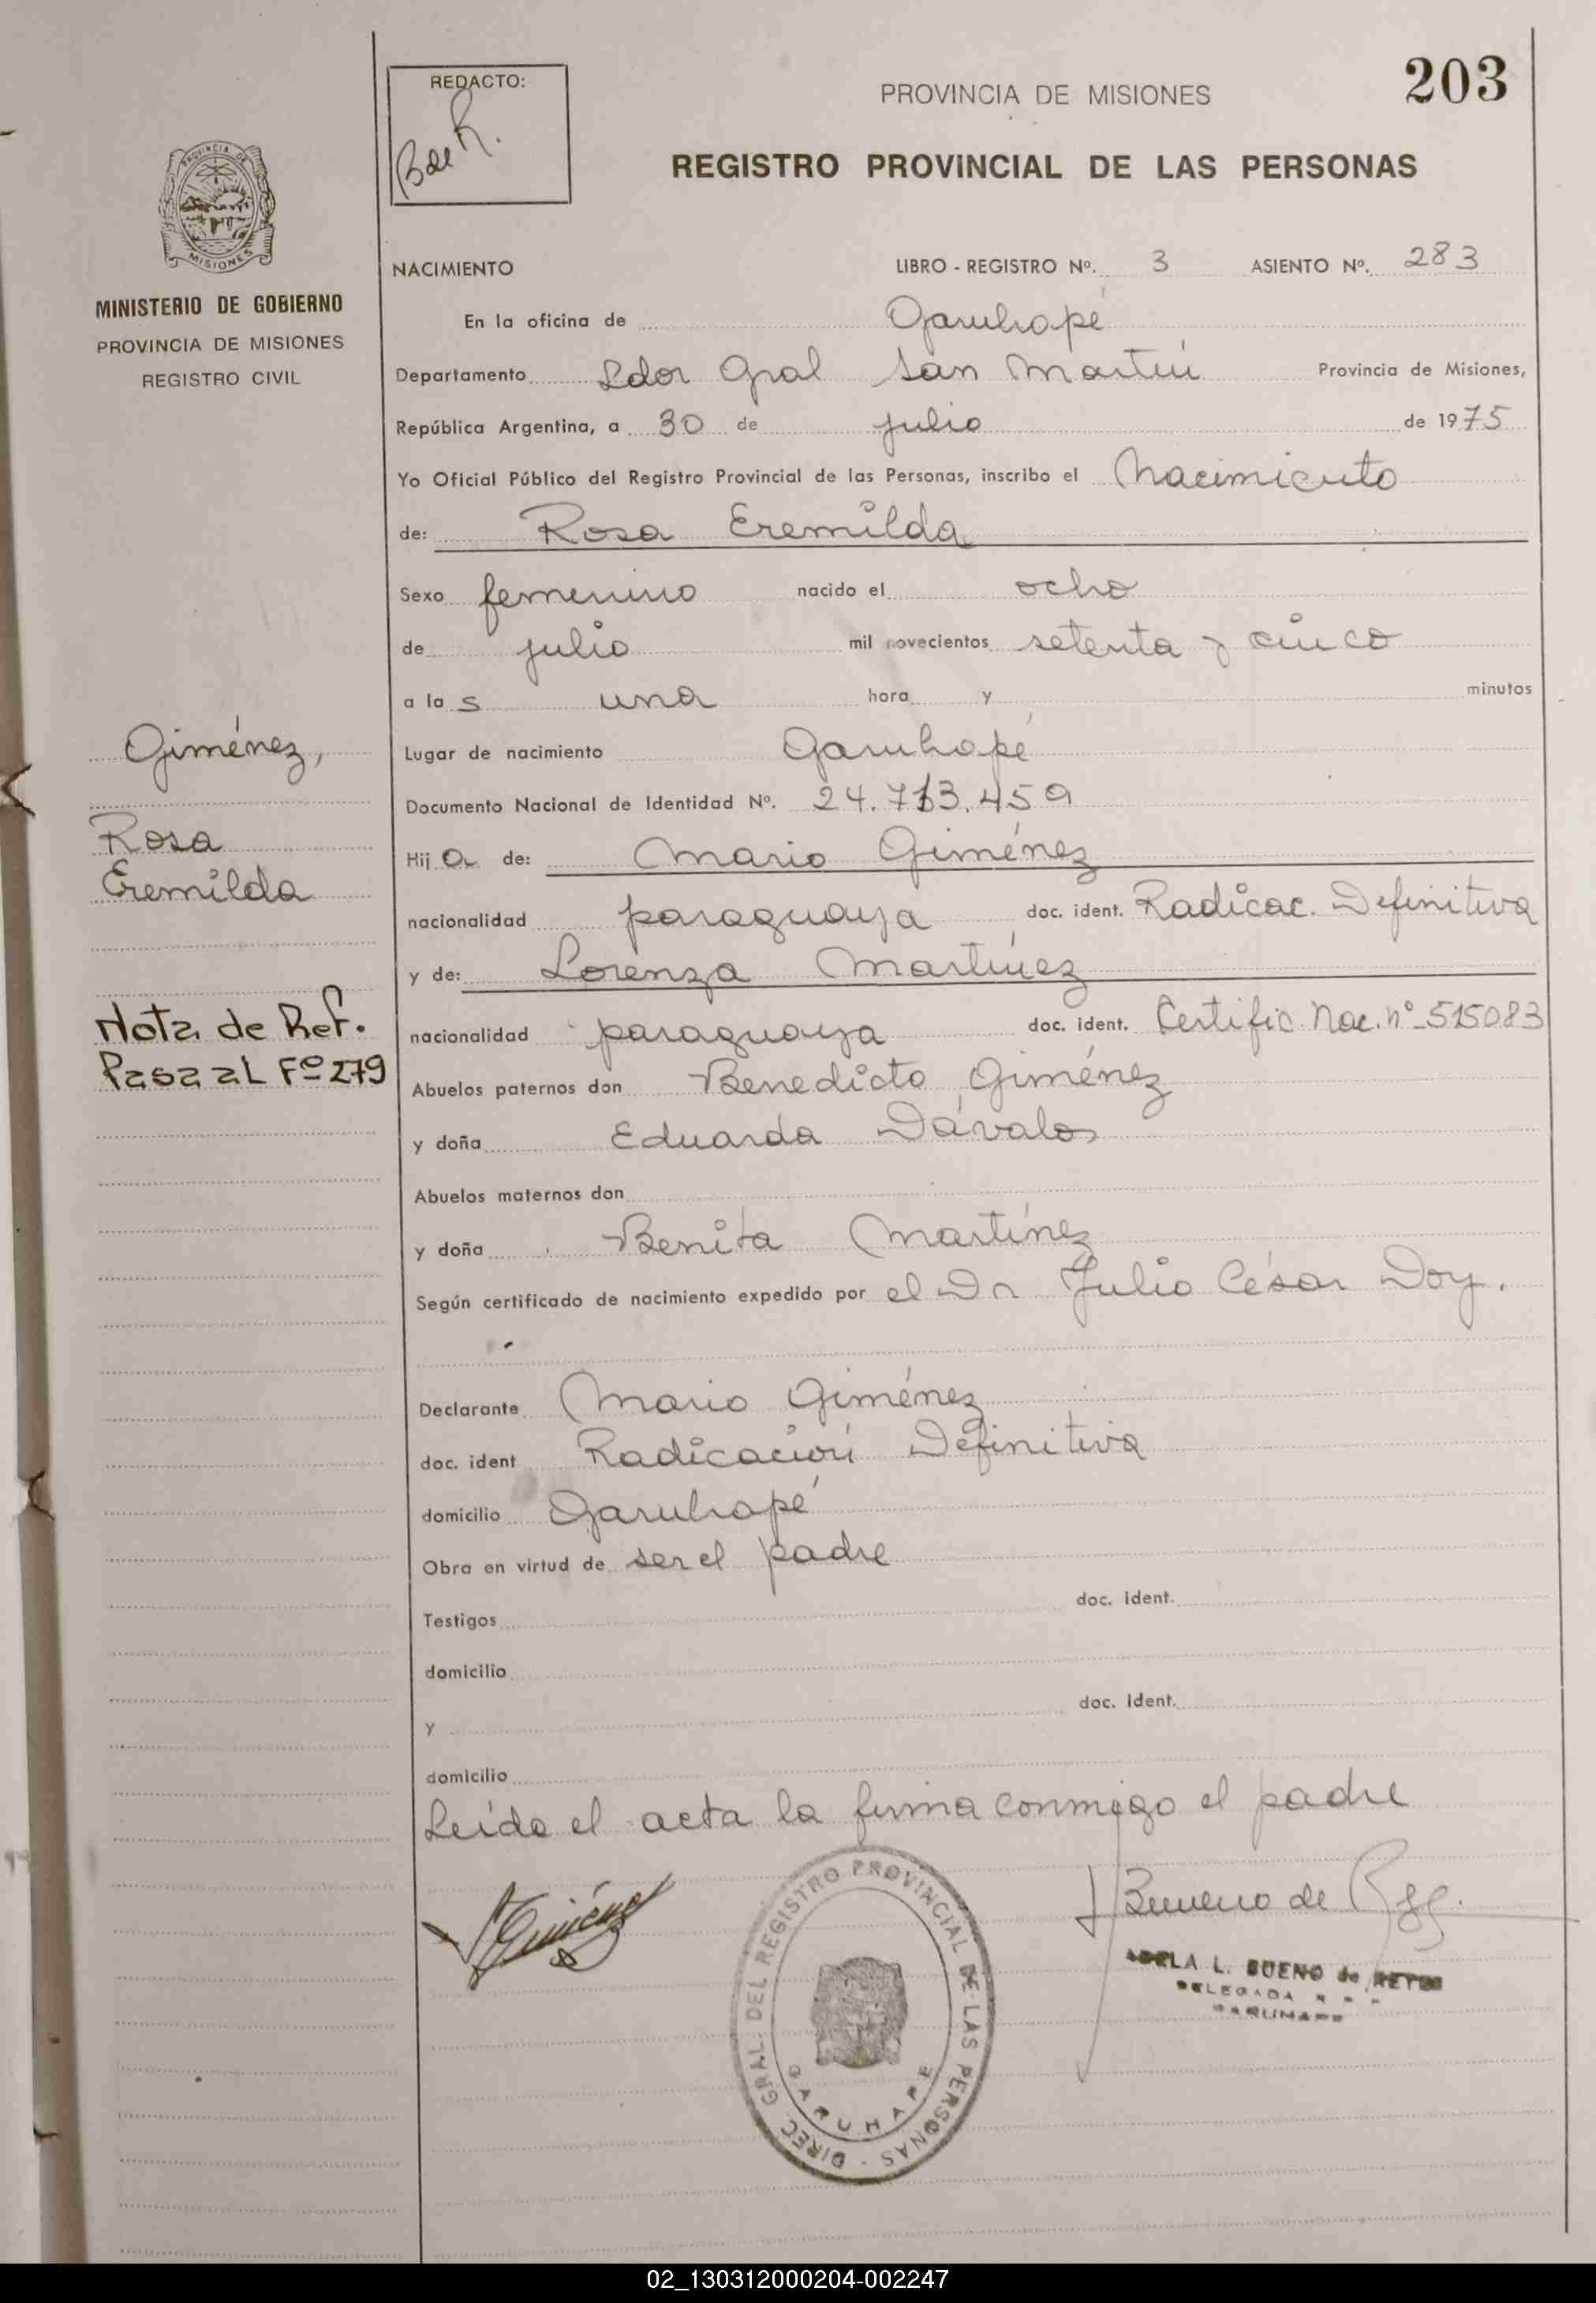 203
REDACTO:
B de R.
PROVINCIA DE MISIONES
REGISTRO PROVINCIAL DE LAS PERSONAS
PROVINCIA DE
MISIONES
MINISTERIO DE GOBIERNO
PROVINCIA DE MISIONES
REGISTRO CIVIL
NACIMIENTO LIBRO - REGISTRO Nº. 3 ASIENTO Nº. 283
En la oficina de Garuhapé
Departamento Ldor Gral San Martín Provincia de Misiones,
República Argentina, a 30 de julio de 1975
Yo Oficial Público del Registro Provincial de las Personas, inscribo el Nacimiento
de: Rosa Eremilda
Sexo femenino nacido el ocho
de julio mil novecientos setenta y cinco
a la s una hora y minutos
Giménez,
Rosa
Eremilda
Nota de Ref.
Pasa al Fº 279
Lugar de nacimiento Garuhapé
Documento Nacional de Identidad Nº. 24.713.459
Hij a de: Mario Giménez
nacionalidad paraguaya doc. ident. Radicac. Definitiva
y de: Lorenza Martínez
nacionalidad paraguaya doc. ident. Certific. Nac. nº 515083
Abuelos paternos don Benedicto Giménez
y doña Eduarda Dávalos
Abuelos maternos don
y doña Benita Martínez
Según certificado de nacimiento expedido por el Dr Julio César Doy.
Declarante Mario Giménez
doc. ident Radicación Definitiva
domicilio Garuhapé
Obra en virtud de ser el padre
Testigos doc. ident.
domicilio
y doc. ident.
domicilio
Leída el acta la firma conmigo el padre
Giménez
DIREC. GRAL. DEL REGISTRO PROVINCIAL DE LAS PERSONAS -
GARUHAPE
Bueno de
ADELA L. BUENO de REYES
DELEGADA
GARUHAPE
02_130312000204-002247